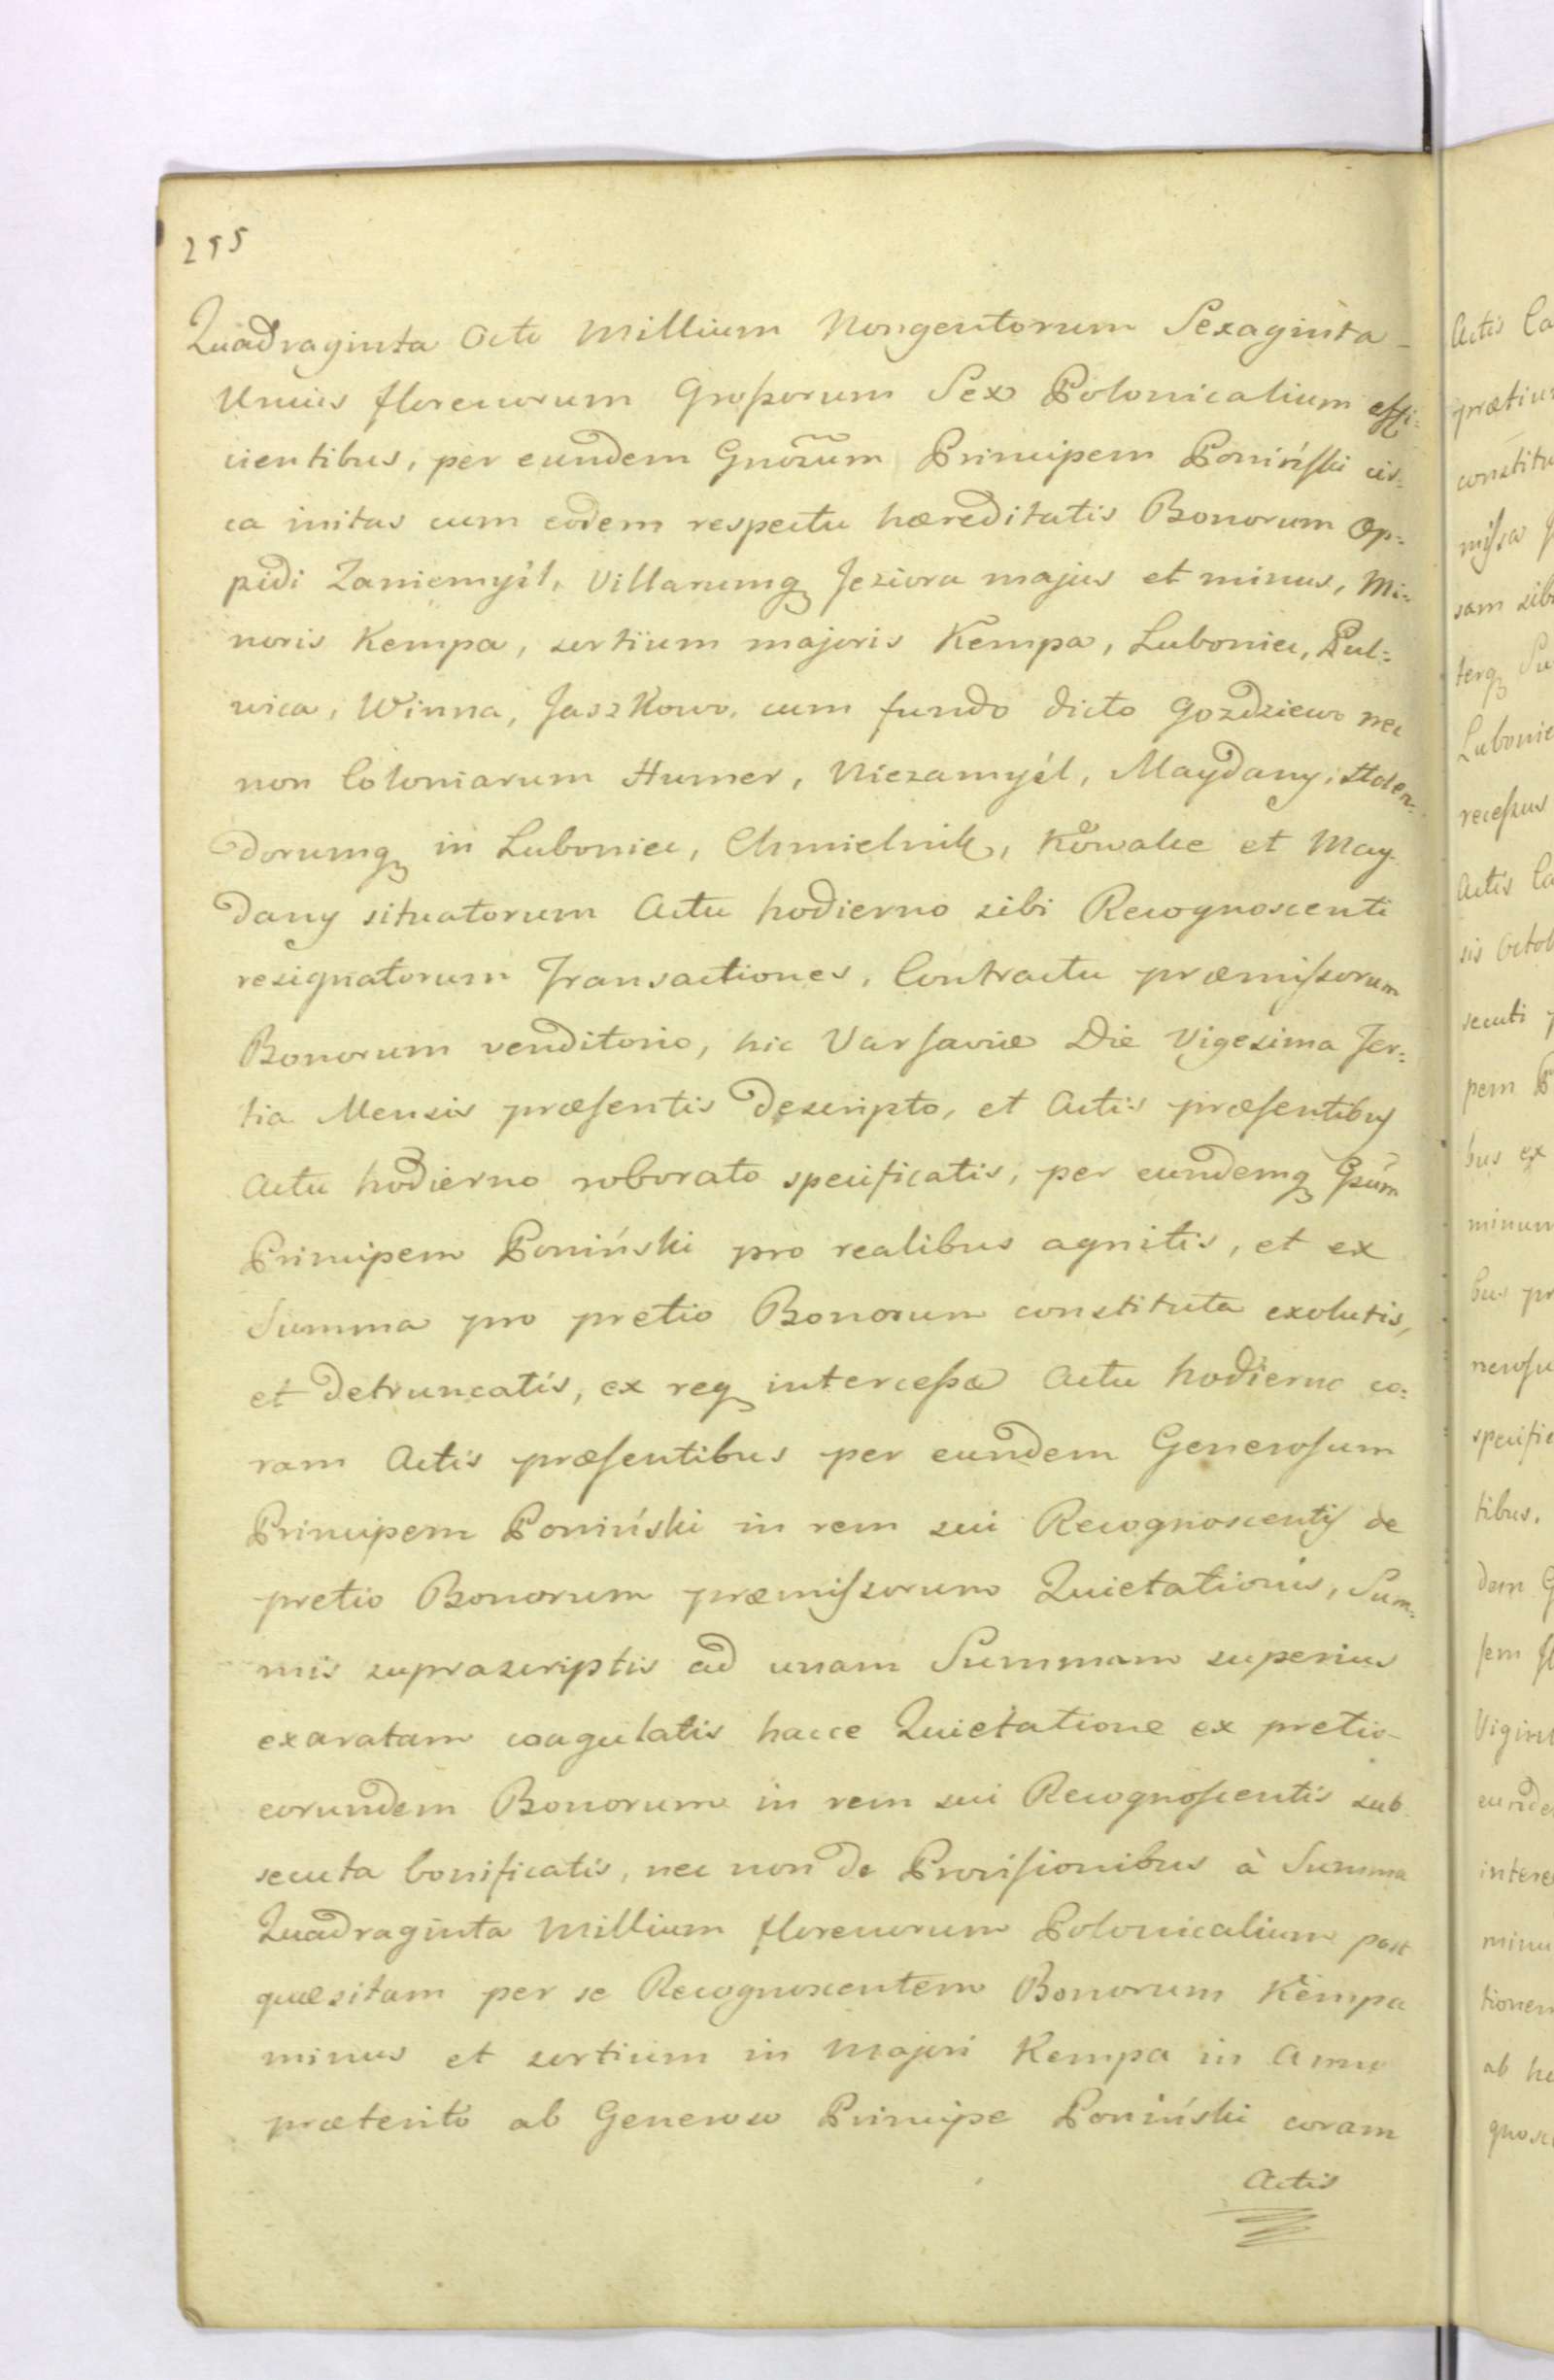 295
Quadraginta Octo Millium Nongentorum Sexaginta
Unius florenorum Grossorum Sex Polonicalium effi=
cientibus, per eundem Gnõrum Principem Poniński cir=
ca initas cum eodem respectu hæreditatis Bonorum Op=
pidi Zaniemyśl, Villarumq Jeziora majus et minus, Mi=
noris Kempa, sortium majoris Kempa, Luboniec, Pol=
wica, Winna, Jaszkowo, cum fundo dicto Gozdziewo nec
non Coloniarum Humer, Niezamyśl, Maydany, Holen=
dorumq in Luboniec, Chmielnik, Kowalce et May
dany situatorum Actu hodierno sibi Recognoscenti
resignatorum Transactiones, Contractu præmissorum
Bonorum venditorio, hic Varsaviæ Die Vigesima Ter=
tia Mensis præsentis descripto, et Actis præsentibus
Actu hodierno roborato specificatis, per eundemq Gsum
Principem Poniński pro realibus agnitis, et ex
Summa pro pretio Bonorum constituta exolutis,
et detruncatis, ex req intercessæ Actu hodierno co=
ram Actis præsentibus per eundem Generosum
Principem Poniński in rem sui Recognoscentis de
pretio Bonorum præmissorum Quietationis, Sum=
mis suprascriptis ad unam Summam superius
exaratam coagulatis hacce Quietatione ex pretio
eorundem Bonorum in rem sui Recognoscentis sub
secuta bonificatis, nec non de Provisionibus à Summa
Quadraginta Millium florenorum Polonicalium post
quæsitam per se Recognoscentem Bonorum Kempa
minus et sortium in Majori Kempa in Anno
præterito ab Generoso Principe Poniński coram
Actis